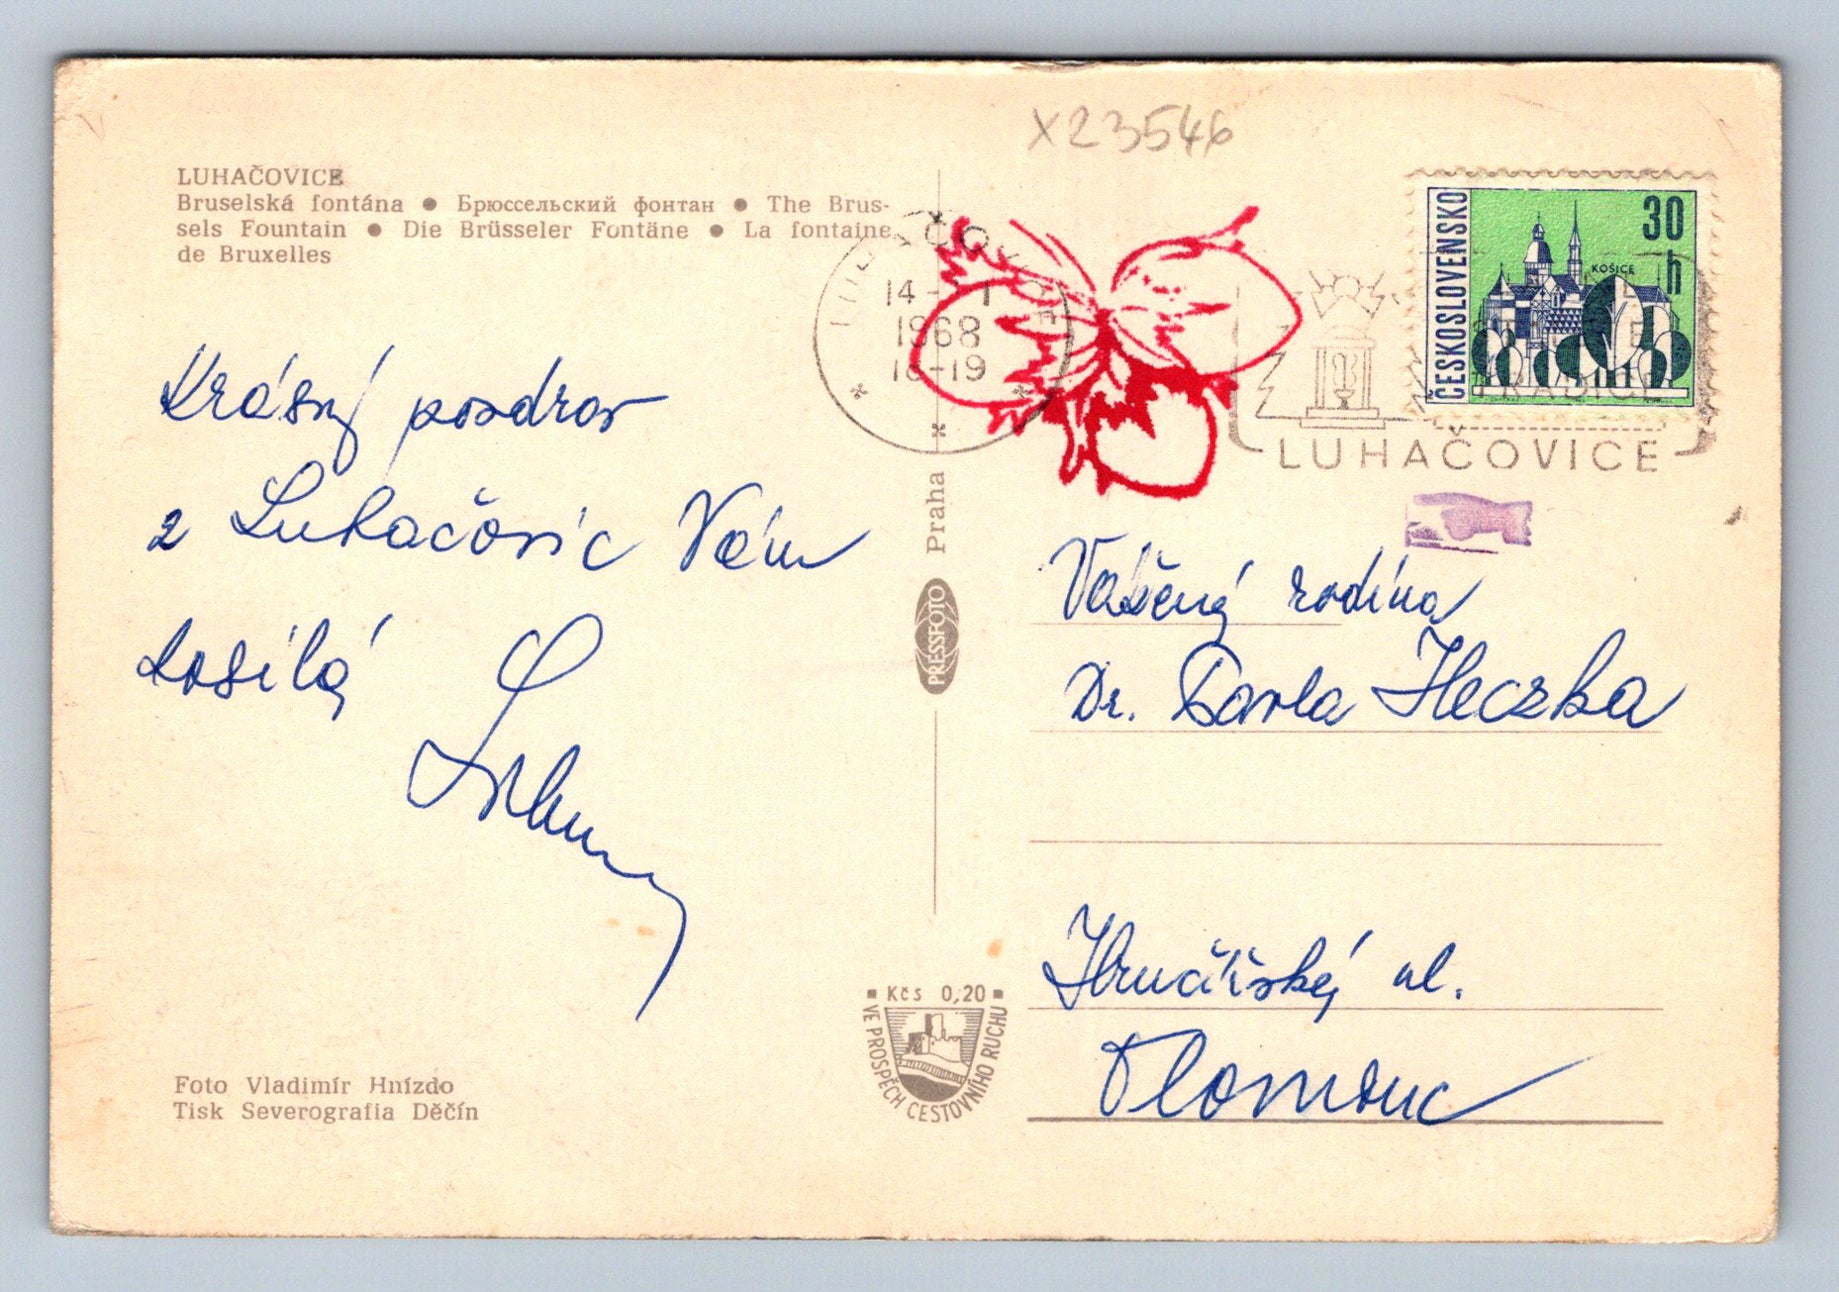 X23546
LUHAČOVICE
Bruselská fontána ● Брюссельский фонтан ● The Brus-
sels Fountain ● Die Brüsseler Fontäne ● La fontaine
de Bruxelles
Krásný pozdrav
z Luhačovic Vám
posílá
Foto Vladimír Hnízdo
Tisk Severografia Děčín
Praha
PRESSFOTO
Kčs 0,20
VE PROSPĚCH CESTOVNÍHO RUCHU
14
1968
-19
ČESKOSLOVENSKO
30
h
KOŠICE
LUHAČOVICE
Vážená rodina
Dr. Pavla Heczka
Hrnčířská ul.
Olomouc